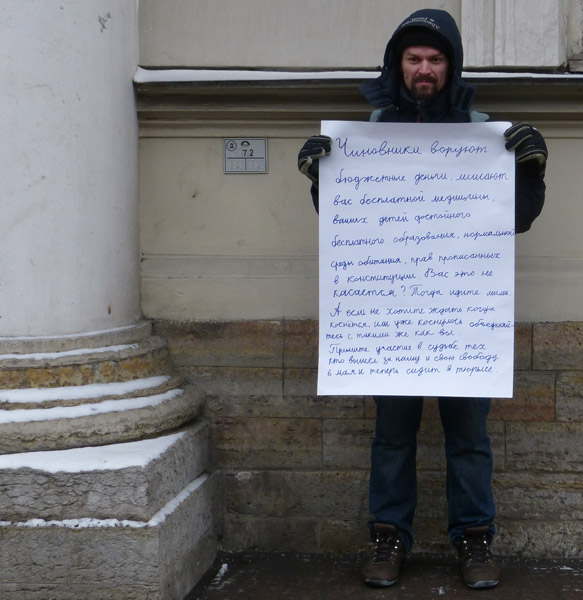 Чиновники воруют
бюджетные деньги, лишают
вас бесплатной медицины,
ваших детей достойного
бесплатного образования, нормальной
среды обитания, прав прописанных
в конституции. Вас это не
касается? Тогда идите мимо.
А если не хотите ждать когда
коснется, или уже коснулось объединяй-
тесь с такими же как вы.
Примите участие в судьбе тех
кто вышел за нашу и свою свободу
6 мая и теперь сидит в тюрьме.
7.2